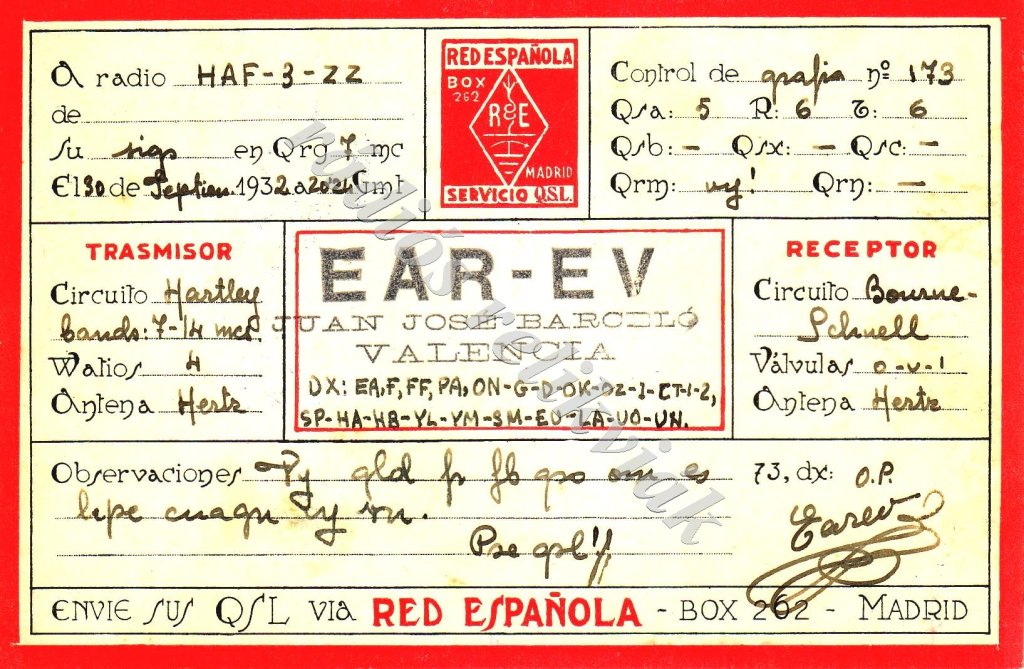 A radio HAF-3-ZZ
de
Su sigs en Qrg 7 mc
El 30 de Septiem. 1932 a 2024 Gmt
RED ESPAÑOLA
BOX
262
R E
MADRID
SERVICIO QSL.
Control de grafia nº 173
Qsa: 5 R: 6 T: 6
Qsb: - Qsx: - Qsc: -
Qrm: vy! Qrn: -
TRASMISOR
Circuito Hartley
bands: 7-14 mcs.
Watios 4
Antena Hertz
EAR-EV
JUAN JOSE BARCELÓ
VALENCIA
DX: EA, F, FF, PA, ON-G-D-OK-OZ-I-CT-1-2,
SP-HA-HB-YL-YM-SM-EU-LA-UO-UN.
RECEPTOR
Circuito Bourne-
Schnell
Válvulas o-v-1
Antena Hertz
Observaciones Vy gld fr fb qso om es
hpe cuagn vy sn.
Pse qsl!!
73, dx: O.P.
Earev
ENVIE SUS QSL VIA RED ESPAÑOLA - BOX 262 - MADRID
rádiós relikviák